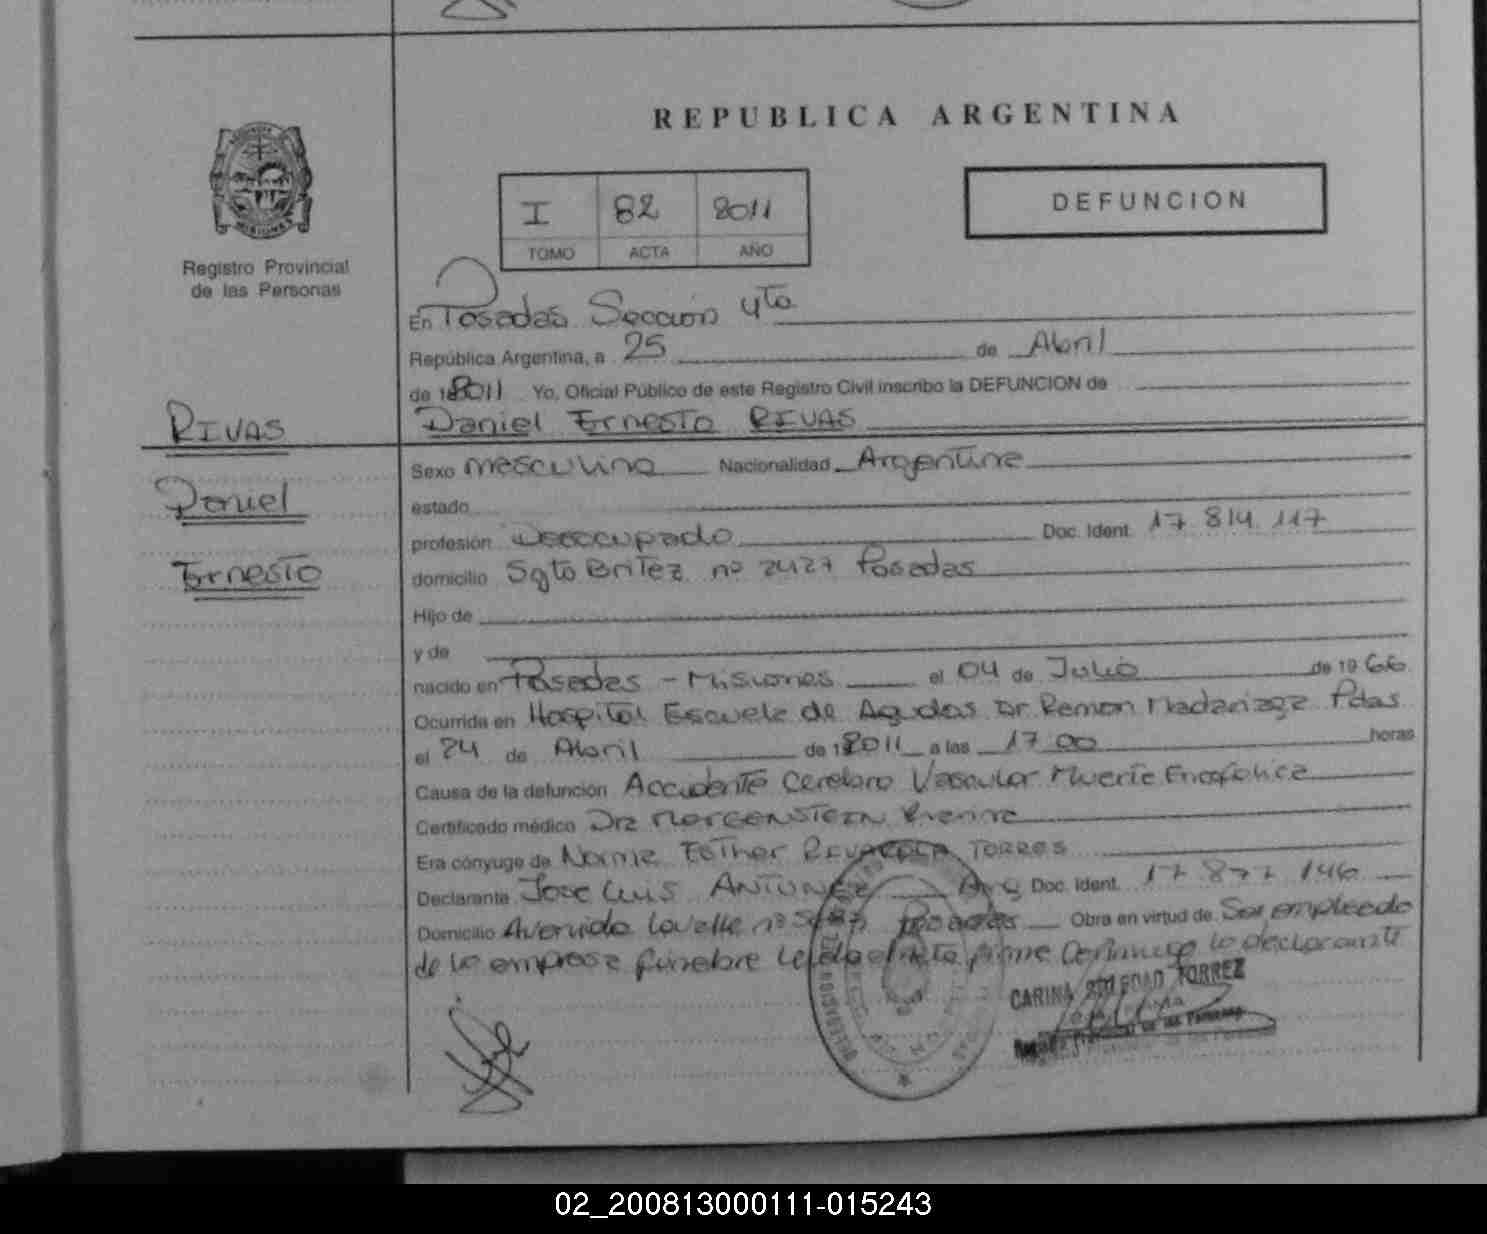 REPUBLICA ARGENTINA
DEFUNCION
I 82 2011
TOMO ACTA AÑO
Registro Provincial
de las Personas
En Posadas Sección 4ta
República Argentina, a 25 de Abril
de 2011 Yo, Oficial Público de este Registro Civil inscribo la DEFUNCION de
Daniel Ernesto RIVAS
RIVAS
Daniel
Ernesto
Sexo masculino Nacionalidad Argentina
estado
profesión Desocupado Doc. Ident. 17.814.117
domicilio Sgto Britez nº 2427 Posadas
Hijo de
y de
nacido en Posadas - Misiones el 04 de Julio de 1966
Ocurrida en Hospital Escuela de Agudos Dr Ramon Madariaga Pdas
el 24 de Abril de 2011 a las 17 00 horas
Causa de la defunción Accidente Cerebro Vascular Muerte Encefalica
Certificado médico Dra MORGENSTERN
Era cónyuge de Norma Esther TORRES
Declarante Jose Luis ANTUNEZ Arg Doc. Ident. 17 877 146
Domicilio Avenida Lavalle nº Posadas Obra en virtud de Ser empleado
de la empresa funebre Leida el Acta firma Conmigo lo declarante
CARINA SOLEDAD TORREZ
02_200813000111-015243